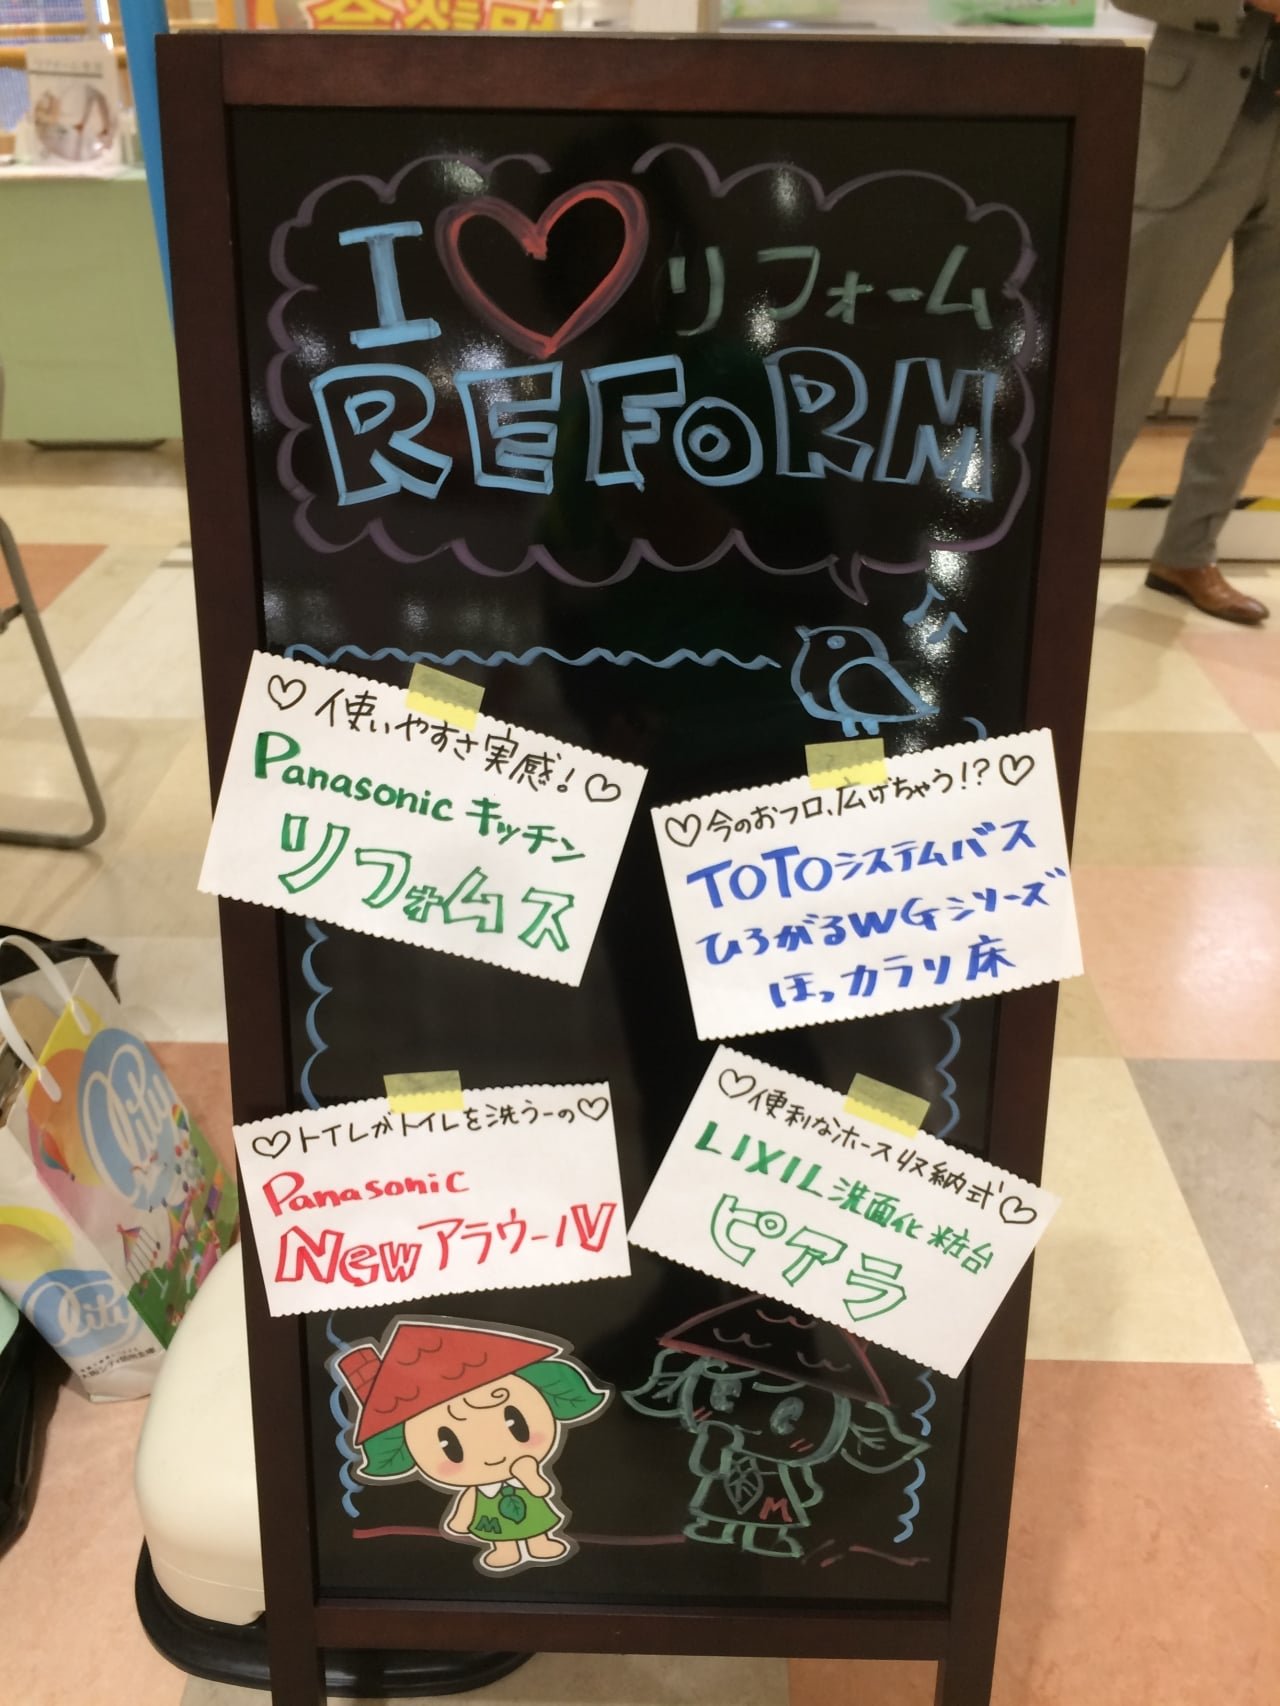 I ♡ リフォーム
REFORM
♡使いやすさ実感!♡
Panasonic キッチン
リフォムス
♡今のおフロ、広げちゃう!?♡
TOTOシステムバス
ひろがるWGシリーズ
ほっカラリ床
♡トイレがトイレを洗うーの♡
Panasonic
New アラウーノV
♡便利なホース収納式♡
LIXIL洗面化粧台
ピアラ
M
M